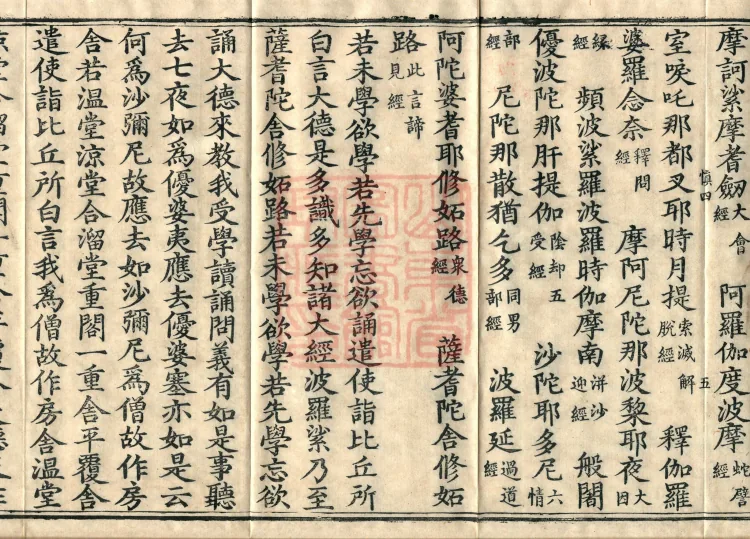 摩訶䋾摩耆劒大會經 阿羅伽度波摩蛇譬經
慎四 五
室唳吒那都叉耶時月提索滅解脫經 釋伽羅
婆羅念奈釋問經 摩訶尼陀那波黎耶夜大因
緣經 頻波䋾羅波羅時伽摩南洴沙迎經 般闍
優波陀那肝提伽五陰却受經 沙陀耶多尼六情
部經 尼陀那散猶乞多同界部經 波羅延過道經
阿陀婆耆耶修妬路衆德經 薩耆陀舍修妬
路此言諦見經
若未學欲學若先學忘欲誦遣使詣比丘所
白言大德是多識多知諸大經波羅䋾乃至
薩耆陀舍修妬路若未學欲學若先學忘欲
誦大德來教我受學讀誦問義有如是事聽
去七夜如爲優婆夷應去優婆塞亦如是云
何爲沙彌尼故應去如沙彌尼爲僧故作房
舍若温堂涼堂合溜堂重閣一重舍平覆舍
遣使詣比丘所白言我爲僧故作房舍温堂